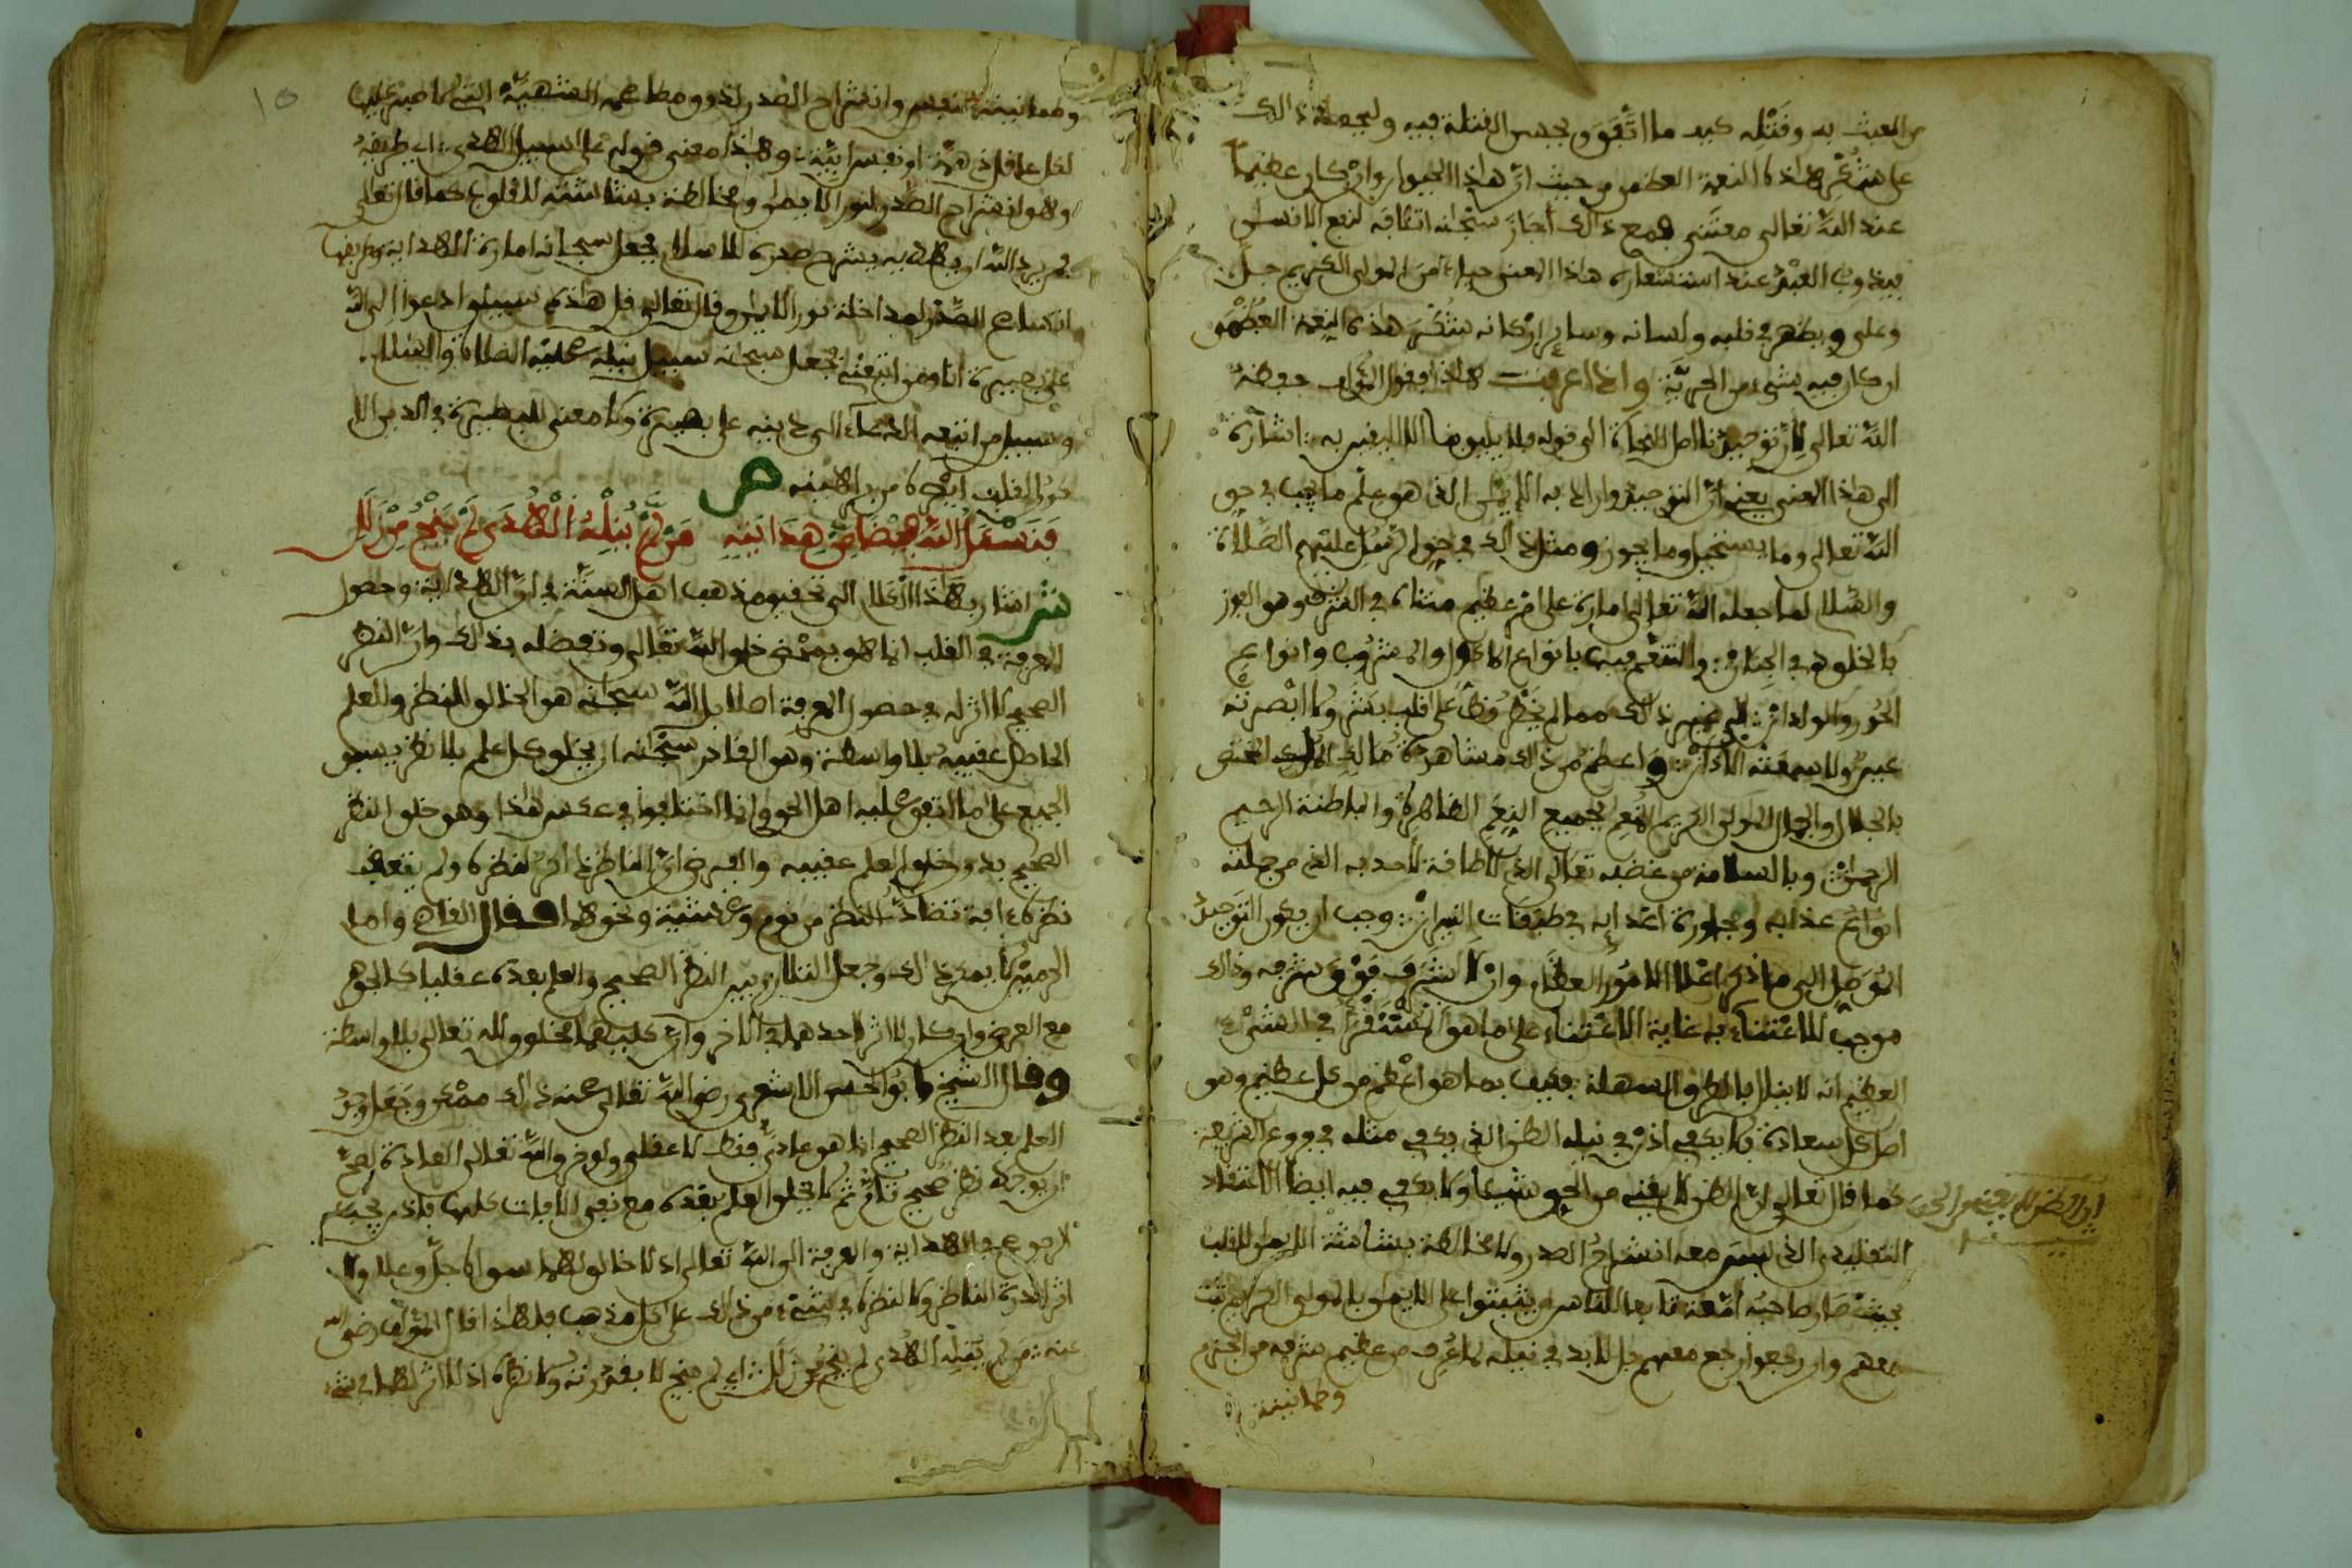 من العبث به وقتله كيف ما اتفق ويحسن القتلة فيه وليجعل ذالك
على شكر هاذه النعمة العظمى من حيث ان هاذا الحيوان وان كان عظيما
عند الله تعالى معتنى فمع ذالك اجاز سبحانه اتلافه لنفع الانسان
فيذوب العبد عند استشعاره هاذا المعنى حياء من المولى الكريم جل
وعلى ويظهر في قلبه ولسانه وساير اركانه شكر هذه النعمة العظمى
ان كان فيه شيء من الحرية واذا عرفت هاذا فقول المؤلف حفظه
الله تعالى لان توحيدنا اصل النجاة الى قوله فلا يليق بنا الا اليقين به اشارة
الى هاذا المعنى يعني ان التوحيد واراد به الايمان الذي هو علم ما يجب في حق
الله تعالى وما يستحيل وما يجوز ومثل ذالك في حق الرسل عليهم الصلاة
والسلام لما جعله الله تعالى امارة على امر عظيم متناه في الشرف وهو الفوز
بالخلود في الجنان والتنعم فيها بانواع الماكول والمشروب وانواع
الحور والولدان الى غير ذالك مما لم يخطر قط على قلب بشر ولا ابصرته
عين ولا سمعته الاذان واعظم من ذلك مشاهدة مالك الملك المختص
بالجلال والجمال المولى الكريم المنعم بجميع النعم الظاهرة والباطنة الرحيم
الرحمان وبالسلامة من غضبه تعالى الذي لا طاقة لاحد به الذي من جملته
انواع عذابه ومجاورة اعدايه في طبقات النيران وجب ان يكون التوحيد
الموصل الى ما ذكر اعلا الامور العظام وان لا شرف فوق شرفه وذلك
موجب للاعتناء به غاية الاعتناء على ما هو المستقرأ في الشيء
العظيم انه لا ينال بالطرق السهلة فكيف بما هو اعظم من كل عظيم وهو
اصل كل سعادة فلا يكفي اذن في نيله الظن الذي يكفي مثله في فروع الشريعة
كما قال تعالى ان الظن لا يغني من الحق شيئا ولا يكفي فيه ايضا الاعتقاد
ان الظن لا يغني من الحق
التقليدي الذي ليس معه انشراح الصدر ولا مخالطة بشاشة الايمان للقلب
بحيث صار صاحبه امعة تابعا للناس ان يثبتوا على الايمان بالمولى الكريم ثبت
معهم وان رجعوا رجع معهم بل لا بد في نيله لما عرف من عظيم شرفه من الجزم
وطمانينة
وطمانينة النفس وانشراح الصدر لذوق مطاعمه الشهية التي لا صبر عليها
لكل عاقل ذي همة او نفس ابية وهاذا معنى قوله على السبيل الهدى اي طريقة
وهو انشراح الصدر لنور الايمان ومخالطة بشاشته للقلوب كما قال تعالى
فمن يرد الله ان يهديه يشرح صدره للاسلام فجعل سبحانه امارة الهداية وطريقها
انفساح الصدر لمداخلة نور الايمان وقال تعالى قل هاذه سبيلي ادعوا الى الله
على بصيرة انا ومن اتبعني فجعل سبحانه سبيل نبيه عليه الصلاة والسلام
وسبيل من اتبعه الدعاء الى دينه على بصيرة ولا معنى للبصيرة في الدين الا
نور القلب من براهينه ص
فنسئل الله بمحض هدايته من لم ينله الهدى لم ينج من زلل
ش اشار بهاذا الكلام الى تحقيق مذهب اهل السنة في ان الهداية وحصول
المعرفة في القلب انما هو بمحض خلق الله تعالى وتفضله بذلك وان النظر
الصحيح لا اثر له في حصول المعرفة اصلا بل الله سبحانه هو الخالق للنظر والعلم
الحاصل عقيبه بلا واسطة وهو القادر سبحانه ان يخلق كل علم بلا نظر يسبق
الجميع على ما اتفق عليه اهل الحق وانما اختلفوا في عكس هاذا وهو خلق النظر
الصحيح بدون خلق العلم عقيبه والفرض ان الناظر ذاكر لنظره ولم يتعقب
نظره ءافة تضاد النظر من نوم وغشية ونحوهما فقال القاضي وامام
الحرمين لا يمكن ذالك وجعل التلازم بين النظر الصحيح والعلم بعده عقليا كالجوهر
مع العرض وان كان لا اثر لاحدهما في الاخر وان كليهما مخلوق لله تعالى بلا واسطة
وقال الشيخ ابو الحسن الاشعري رضي الله تعالى عنه ذالك ممكن وجعل وجود
العلم بعد النظر الصحيح انما هو عادي فقط لا عقلي ولو خرق الله تعالى العادة لصح
ان يوجد نظر صحيح تام ثم لا يخلق العلم بعده مع نفي الافات كلها فاذن يجب
الرجوع في الهداية والمعرفة الى الله تعالى اذ لا خالق لهما سواه جل وعلا ولا
اثر لقدرة الناظر ولا لنظره في شيء من ذالك على كل مذهب فلهاذا قال المؤلف رضي الله
عنه من لم ينله الهدى لم ينج من زلل اي لم ينج لا بقدرته ولا نظره اذ لا اثر لهما في شيء
١٥